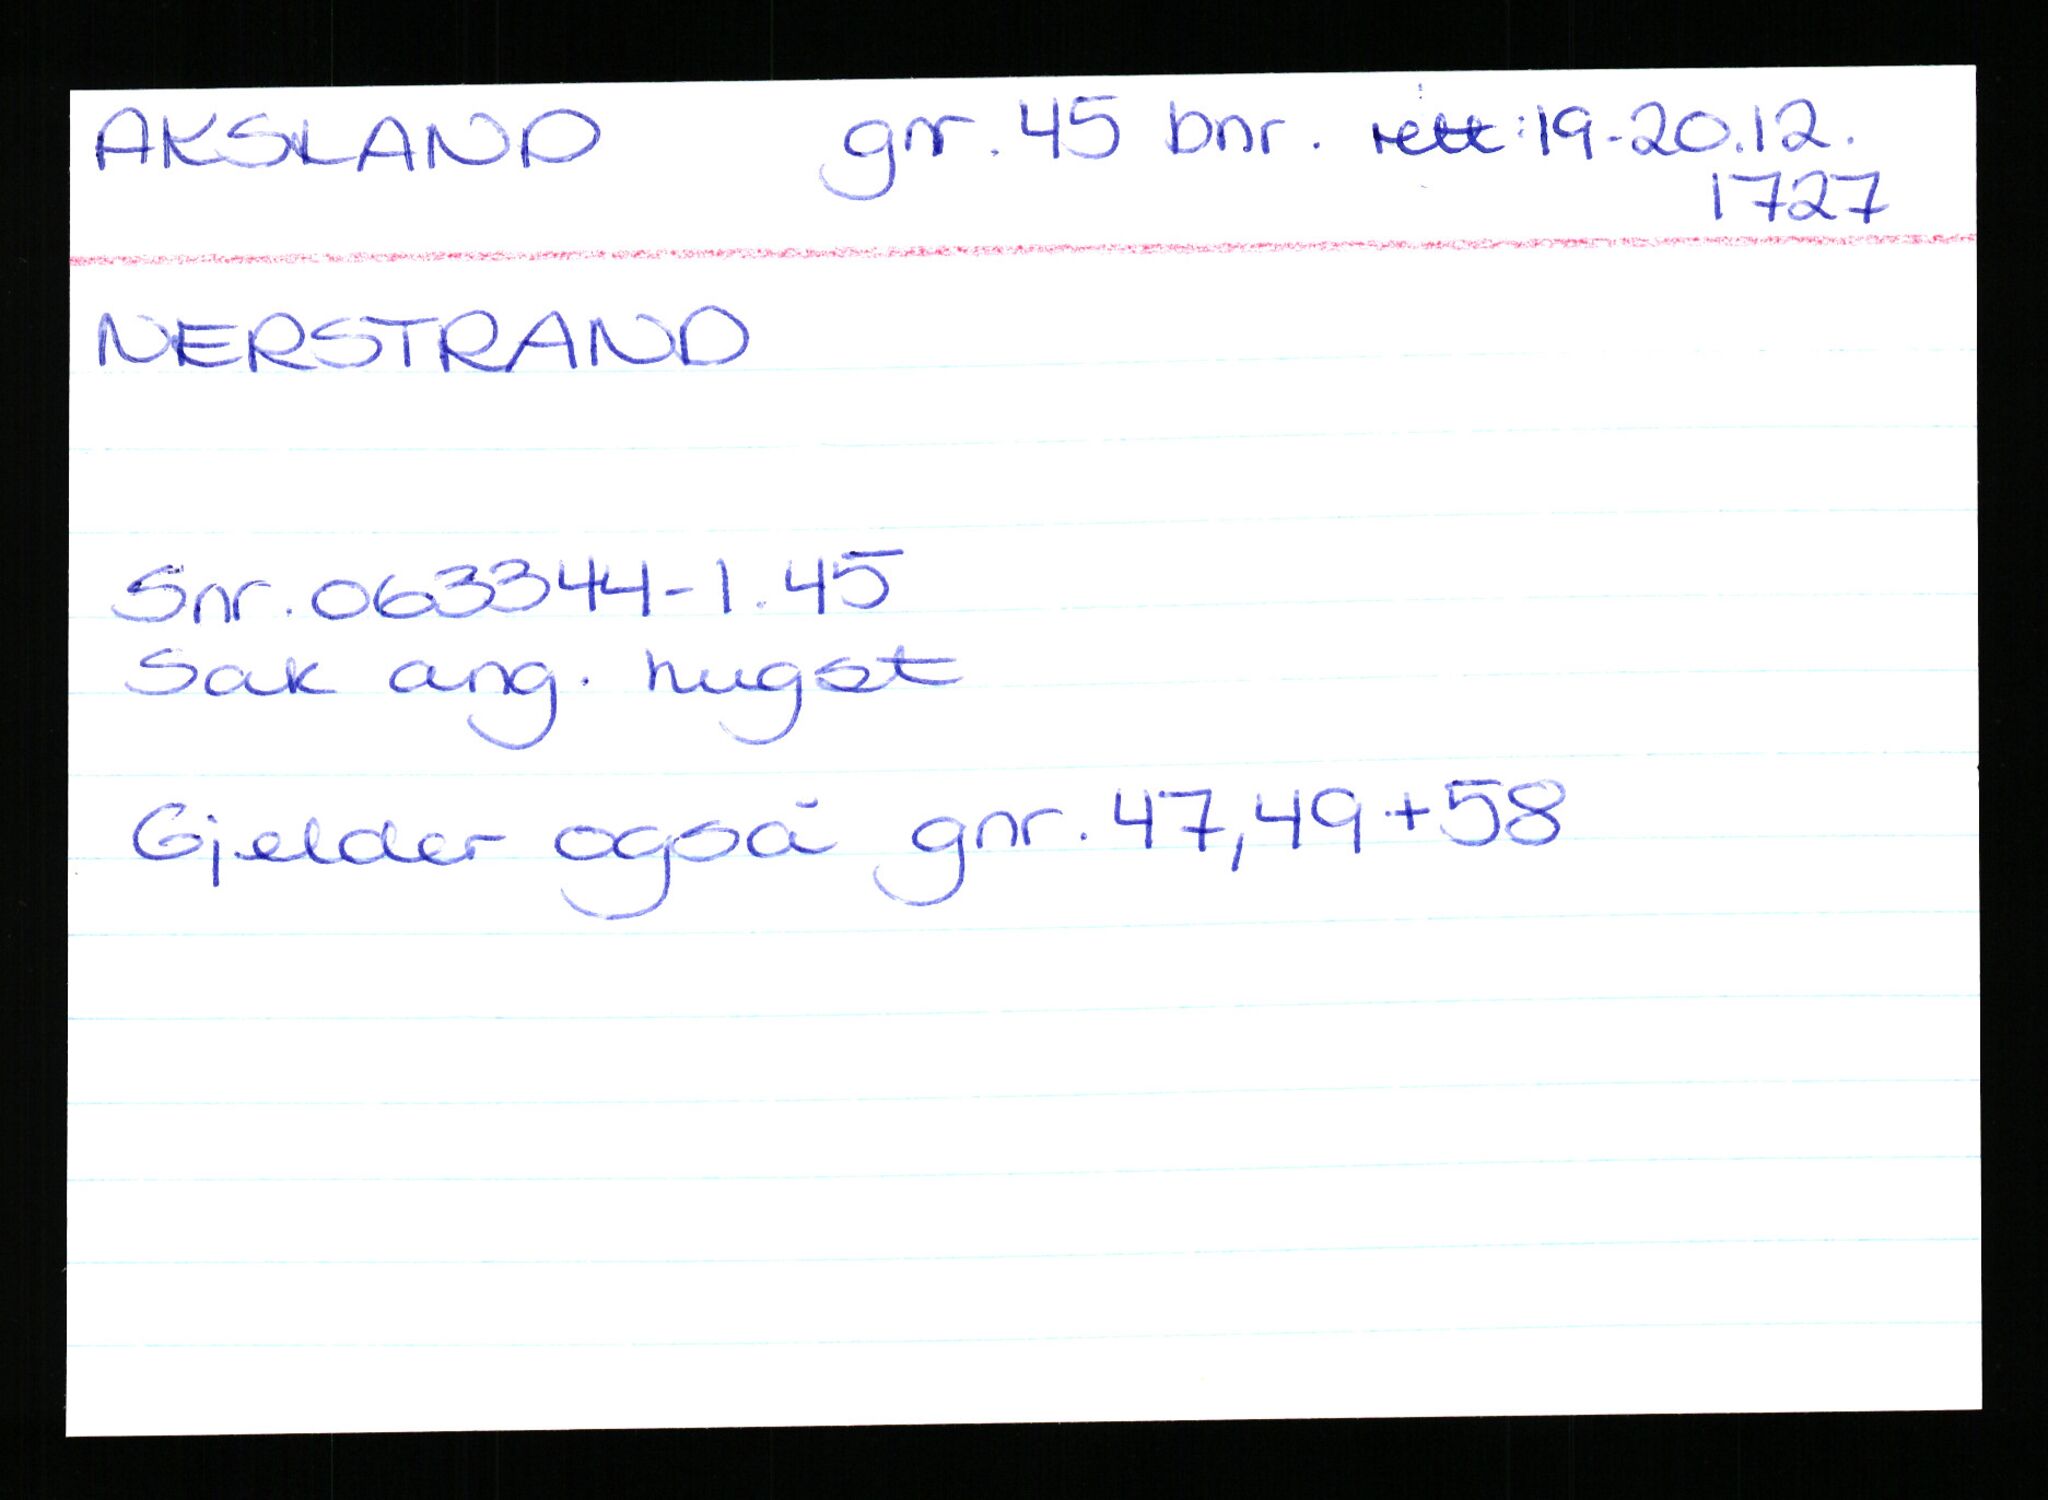 AKSLAND gnr. 45 bnr. rett: 19-20.12.
1727
NERSTRAND
Snr. 063344-1.45
Sak ang. hugst
Gjelder også gnr. 47, 49 + 58